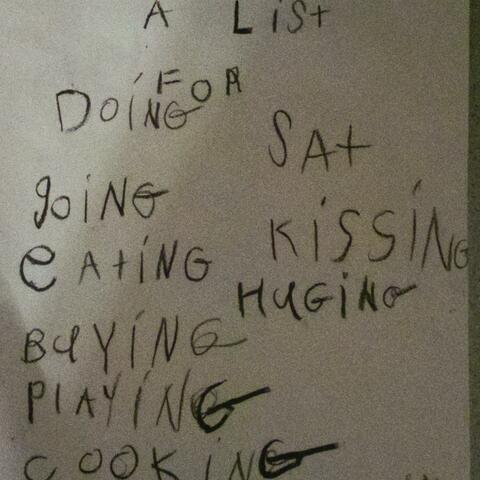 A LiST
FOR
DOiNG
SAt
gOiNG
KiSSiNG
eAtiNG
HUGiNG
BUYiNG
PlAYiNG
COOKiNG